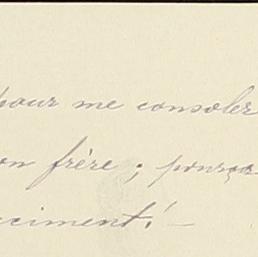 pour me consoler
on frère ; pourça
eciment! —